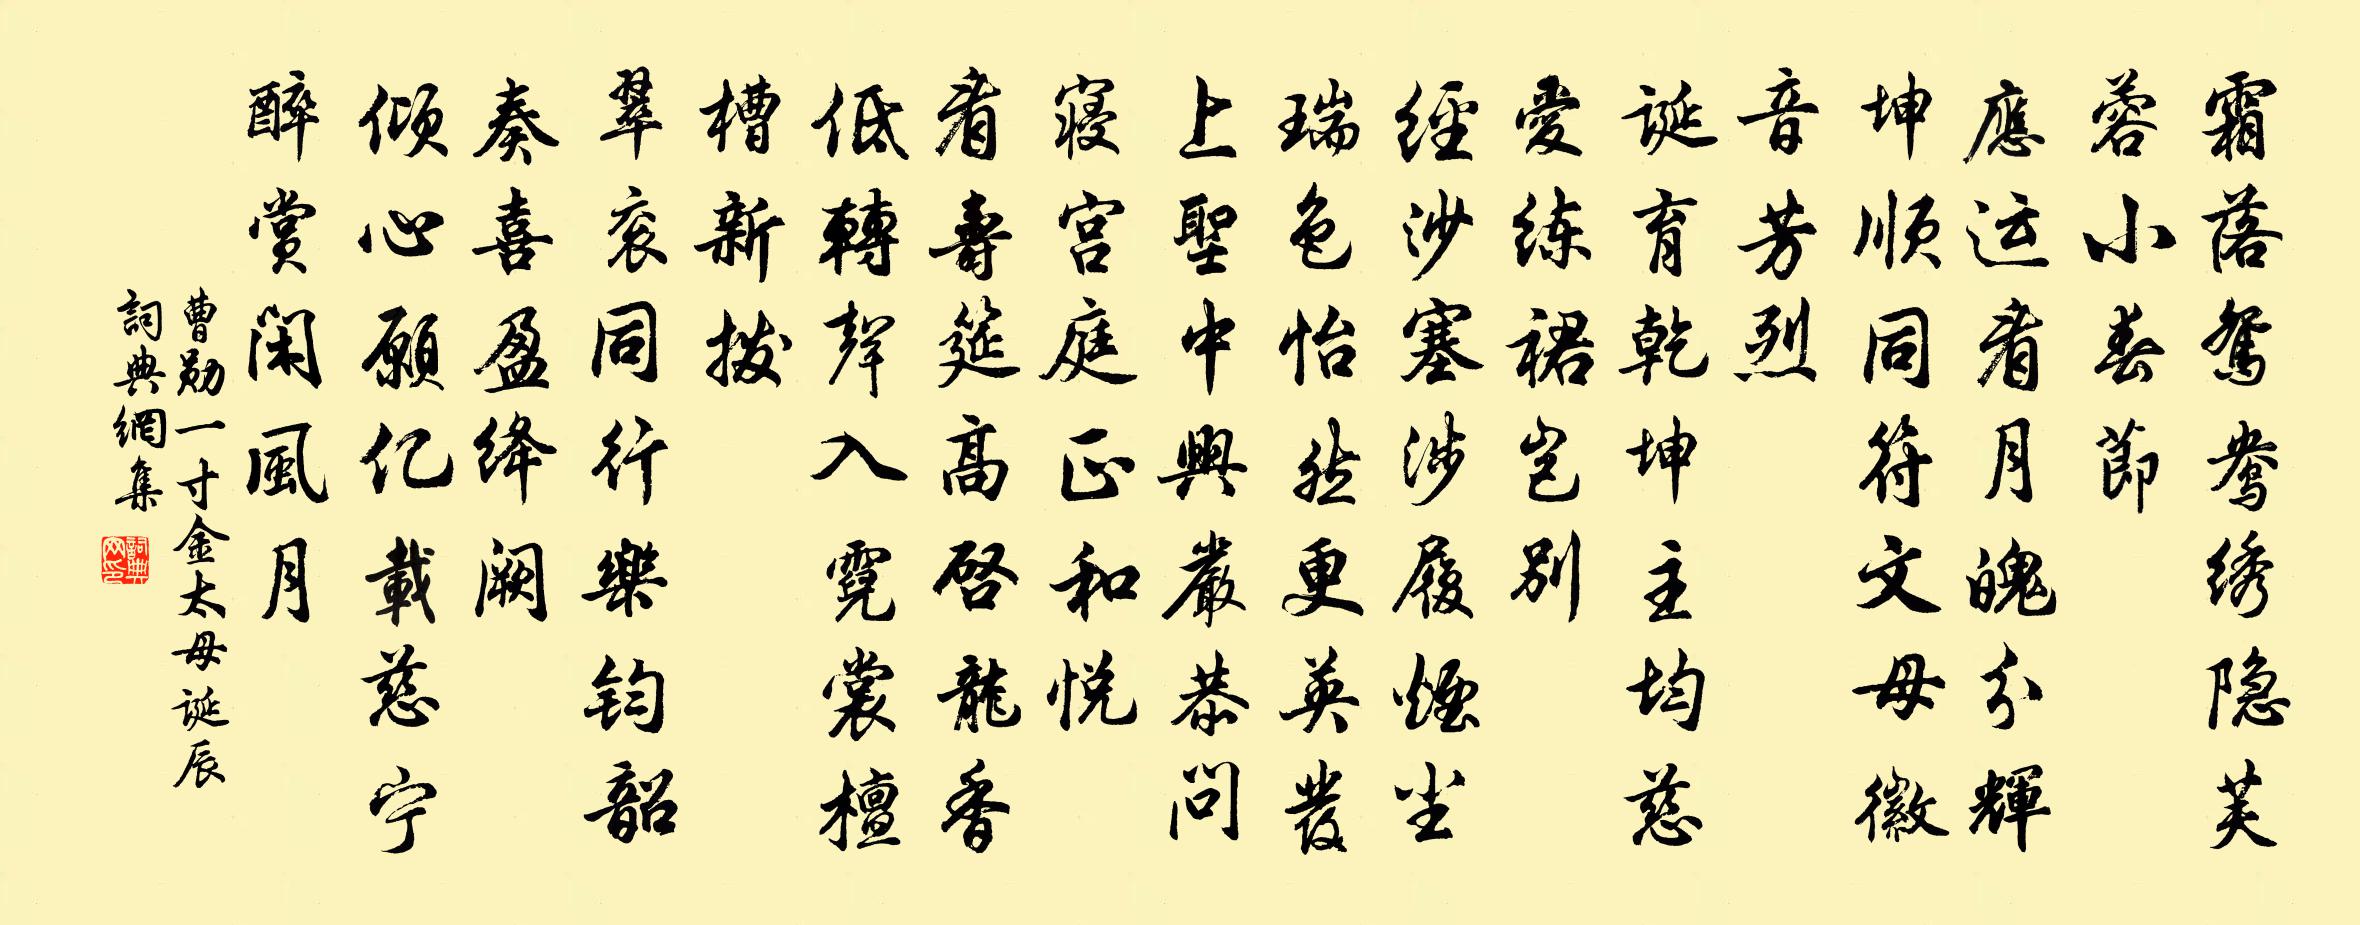 霜落鴛鴦绣隐芙
蓉小春節
應运看月魄分輝
坤顺同符文母徽
音芳烈
诞育乾坤主均慈
愛练裙岂别
經沙塞涉履煙尘
瑞色怡然更英發
上聖中興嚴恭问
寝宫庭正和悦
看壽筵高启龍香
低轉聲入霓裳檀
槽新拨
翠衮同行樂钧韶
奏喜盈绛阙
倾心願亿載慈宁
醉赏闲風月
曹勋一寸金太母诞辰
詞典網集
詞典网印